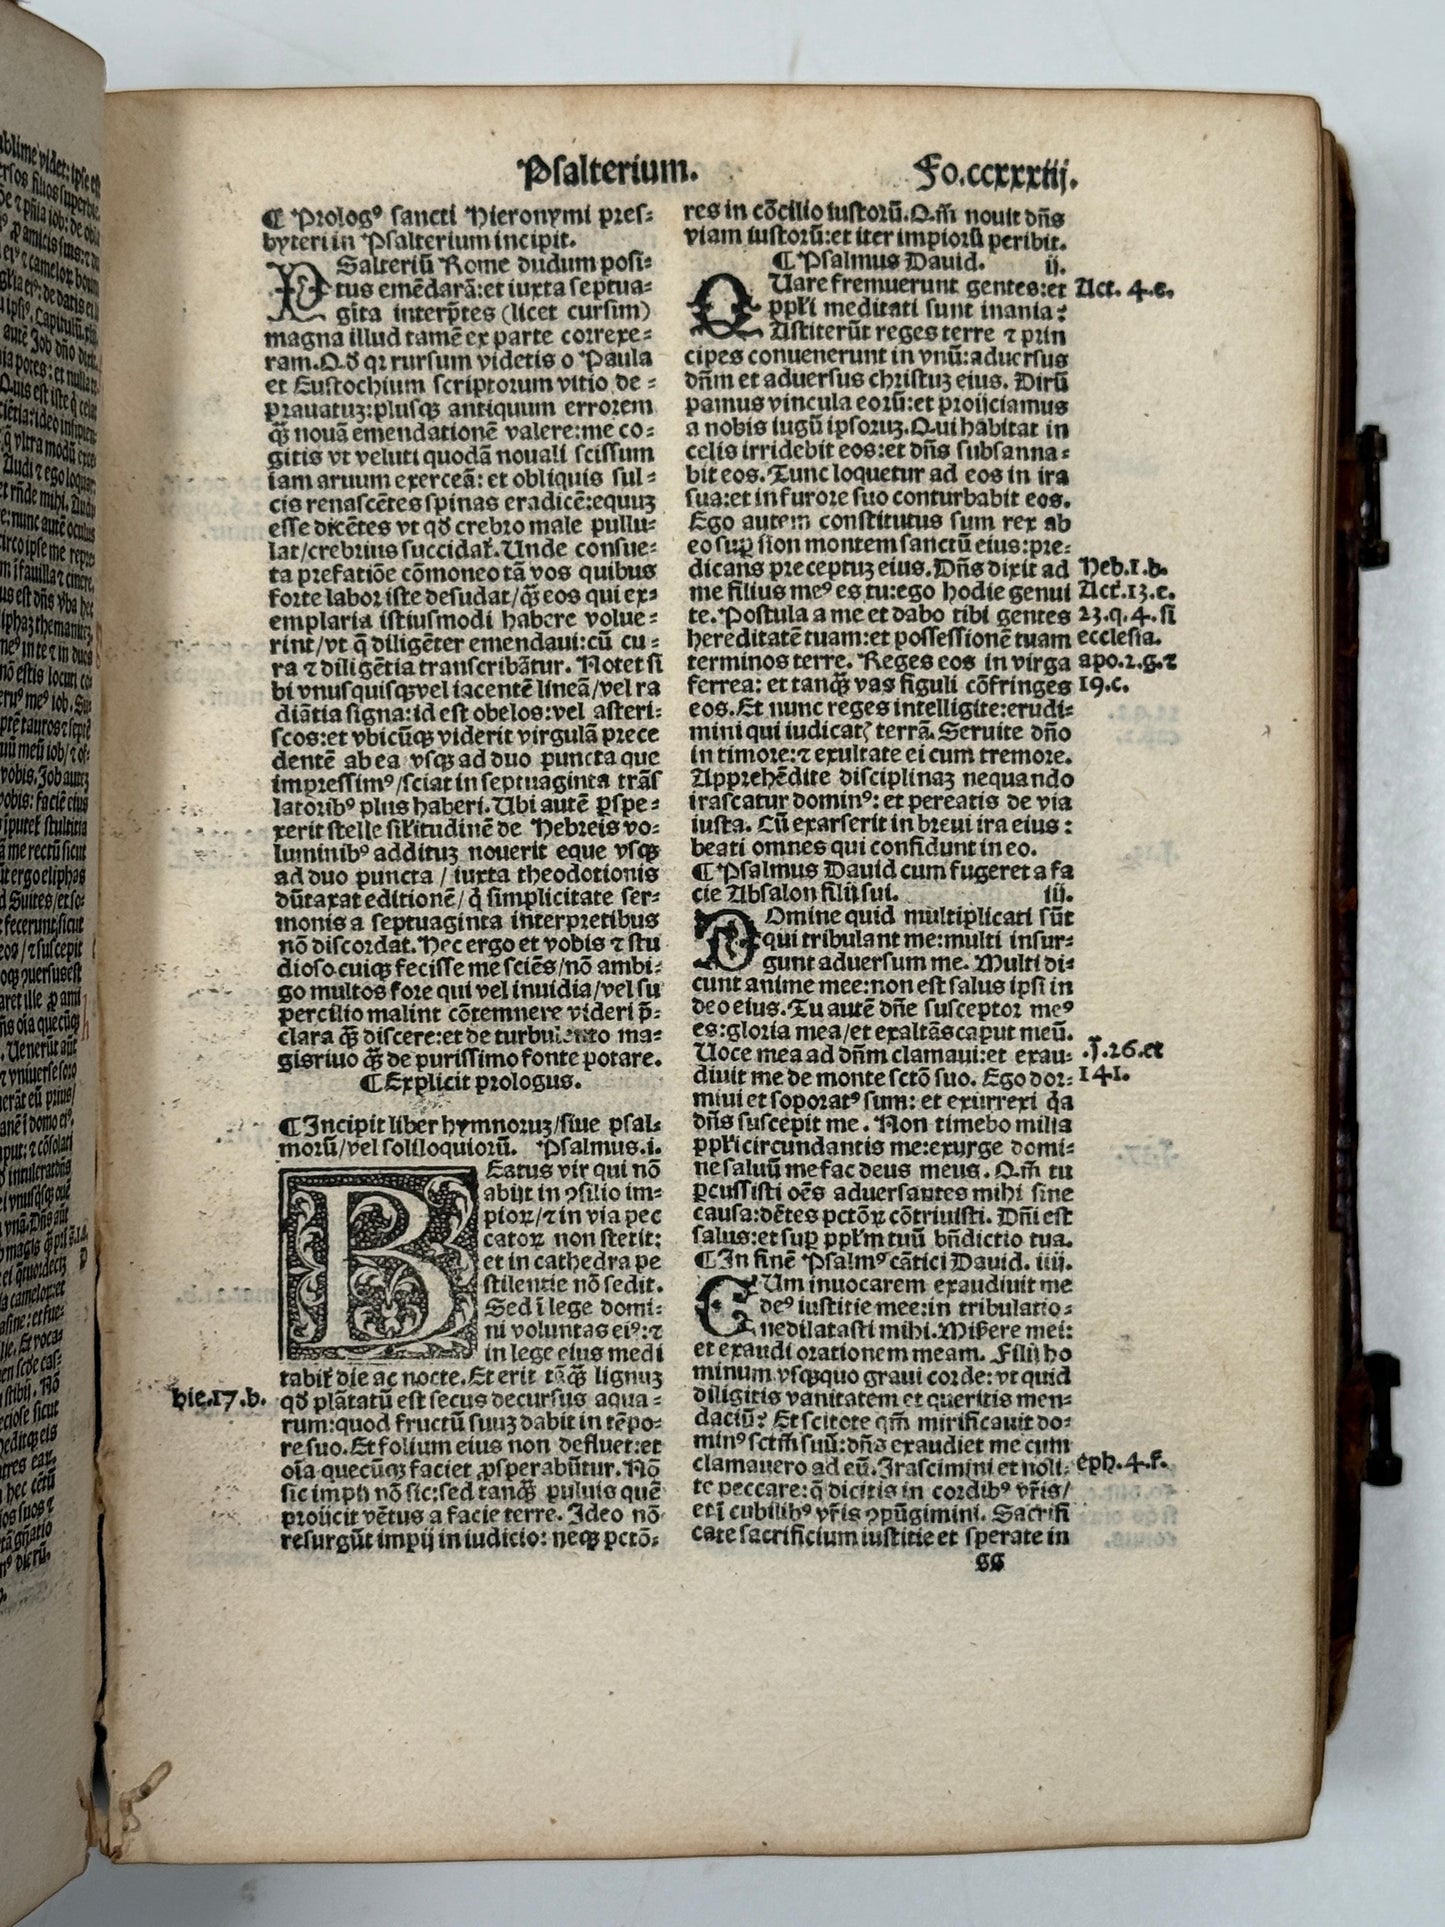 Psalterium.
Fo.ccxxxiij.
¶ Prologꝰ sancti Hieronymi pres⸗
byteri in Psalterium incipit.
PSalteriū Rome dudum posi⸗
tus emēdarā:et iuxta septua⸗
gīta interp̄tes (licet cursim)
magna illud tamē ex parte correxe⸗
ram.Qđ qr rursum videtis o Paula
et Eustochium scriptorum vitio de⸗
prauatuꝫ:plusqꝫ antiquum errorem
qꝫ̄ nouā emendationē valere:me co⸗
gitis vt veluti quodā nouali scissum
iam aruum exerceā: et obliquis sul⸗
cis renascētes spinas eradicē:equuꝫ
esse dicētes vt qđ crebro male pullu⸗
lat/crebrius succidat̄.Unde consue⸗
ta prefatiōe cōmoneo tā vos quibus
forte labor iste desudat/qꝫ̄ eos qui ex⸗
emplaria istiusmodi habere volue⸗
rint/vt q̄ diligēter emendaui:cū cu⸗
ra ⁊ diligētia transcribātur. Notet si
bi vnusquisqꝫ vel iacentē lineā/vel ra
diātia signa:id est obelos:vel asteri⸗
scos:et vbicūqꝫ viderit virgulā prece
dentē ab ea vsqꝫ ad duo puncta que
impressimꝰ/sciat in septuaginta trāſ
latoribꝰ plus haberi.Ubi autē ꝑspe⸗
xerit stelle sił̄itudinē de Hebreis vo⸗
luminibꝰ addituꝫ nouerit eque vsqꝫ
ad duo puncta / iuxta theodotionis
dūtaxat editionē/ q̄ simplicitate ser⸗
monis a septuaginta interpretibus
nō discordat.Hec ergo et vobis ⁊ stu
dioso cuiqꝫ fecisse me sciēs/nō ambi⸗
go multos fore qui vel inuidia/vel su
percilio malint cōtemnere videri p̄⸗
clara qꝫ̄ discere:et de turbulento ma⸗
gisriuo qꝫ̄ de purissimo fonte potare.
¶ Explicit prologus.
¶ Incipit liber hymnoruꝫ/siue psal⸗
morū/vel soliloquiorū. Psalmus.i.
BEatus vir qui nō
abijt in ꝯsilio im⸗
pioꝝ/⁊ in via pec
catoꝝ non stetit:
et in cathedra pe
stilentie nō sedit.
Sed ī lege domi⸗
ni voluntas eiꝰ:⁊
in lege eius medi
tabit̄ die ac nocte.Et erit tāqꝫ̄ lignuꝫ
hie.17.b. qđ plātatū est secus decursus aqua⸗
rum:quod fructū suuꝫ dabit in tēpo⸗
re suo.Et folium eius non defluet:et
oīa quecūqꝫ faciet ꝓsperabūtur.Nō
sic impij nō sic:sed tanqꝫ̄ puluis quē
proijcit vētus a facie terre. Ideo nō
resurgūt impij in iudicio: neqꝫ pctō⸗
res in cōcilio iustorū.Qm̄ nouit dn̄s
viam iustorū:et iter impiorū peribit.
¶ Psalmus Dauid. ij.
QUare fremuerunt gentes:et Act. 4.e.
pp̄li meditati sunt inania?
Astiterūt reges terre ⁊ prin
cipes conuenerunt in vnū:aduersus
dn̄m et aduersus christuꝫ eius. Dirū
pamus vincula eorū:et proijciamus
a nobis iugū ipsoruꝫ.Qui habitat in
celis irridebit eos:et dn̄s subsanna⸗
bit eos.Tunc loquetur ad eos in ira
sua:et in furore suo conturbabit eos.
Ego autem constitutus sum rex ab
eo suꝑ sion montem sanctū eius:pre⸗
dicans preceptuꝫ eius.Dn̄s dixit ad Heb.1.b.
me filius meꝰ es tu:ego hodie genui Act.13.e.
te. Postula a me et dabo tibi gentes 23.q.4.si
hereditatē tuam:et possessionē tuam ecclesia.
terminos terre. Reges eos in virga apo.2.g.⁊
ferrea: et tanqꝫ̄ vas figuli cōfringes 19.c.
eos.Et nunc reges intelligite:erudi⸗
mini qui iudicatꝭ terrā.Seruite dn̄o
in timore:⁊ exultate ei cum tremore.
Apprehēdite disciplinaꝫ nequando
irascatur dominꝰ: et pereatis de via
iusta. Cū exarserit in breui ira eius:
beati omnes qui confidunt in eo.
¶ Psalmus Dauid cum fugeret a fa
cie Absalon filij sui. iij.
DOmine quid multiplicati sūt
qui tribulant me:multi insur⸗
gunt aduersum me. Multi di⸗
cunt anime mee:non est salus ipsi in
deo eius.Tu autē dn̄e susceptor meꝰ
es:gloria mea/et exaltās caput meū.
Uoce mea ad dn̄m clamaui:et exau⸗ .j.26.et
diuit me de monte sctō suo. Ego dor⸗ 141.
miui et soporatꝰ sum: et exurrexi q̄a
dn̄s suscepit me. Non timebo milia
pp̄li circundantis me:exurge domi⸗
ne saluū me fac deus meus. Qm̄ tu
ꝑcussisti oēs aduersantes mihi sine
causa:dētes pctōꝝ cōtriuisti. Dn̄i est
salus:et suꝑ pp̄lm tuū bn̄dictio tua.
¶ In finē Psalmꝰ cātici Dauid. iiij.
CUm inuocarem exaudiuit me
deꝰ iustitie mee:in tribulatio⸗
ne dilatasti mihi.Misere mei:
et exaudi orationem meam. Filij ho
minum vsqꝫquo graui corde: vt quid
diligitis vanitatem et queritis men⸗
daciū? Et scitote qm̄ mirificauit do⸗
minꝰ sctm̄ suū:dn̄s exaudiet me cum
clamauero ad eū.Irascimini et noli⸗ eph.4.f.
te peccare:q̄ dicitis in cordibꝰ vr̄is/
et ī cubilibꝰ vr̄is ꝯpūgimini. Sacrifi
cate sacrificium iustitie et sperate in
GG